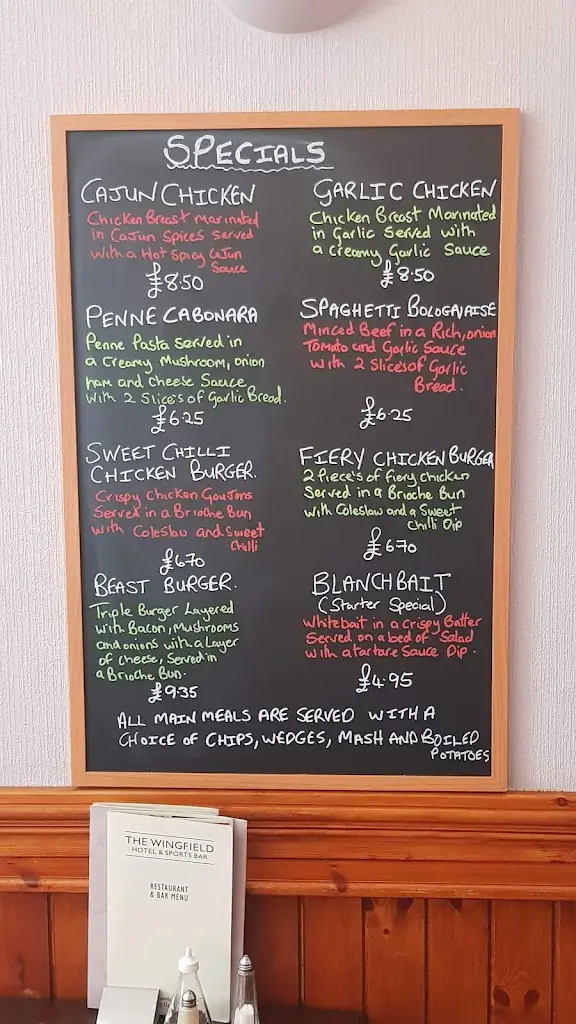 SPECIALS
CAJUN CHICKEN
Chicken Breast Marinated
in Cajun Spices Served
with a Hot Spicy Cajun
Sauce
£8.50
GARLIC CHICKEN
Chicken Breast Marinated
in Garlic Served with
a creamy Garlic Sauce
£8.50
PENNE CABONARA
Penne Pasta Served in
a Creamy Mushroom, onion
ham and Cheese Sauce
with 2 Slice's of Garlic Bread.
£6.25
SPAGHETTI BOLOGNAISE
Minced Beef in a Rich, onion
Tomato and Garlic Sauce
with 2 Slice's of Garlic
Bread.
£6.25
SWEET CHILLI
CHICKEN BURGER.
Crispy Chicken Goujons
Served in a Brioche Bun
with Coleslaw and Sweet
Chilli
£6.70
FIERY CHICKEN BURGER
2 Piece's of fiery chicken
Served in a Brioche Bun
with Coleslaw and a Sweet
Chilli Dip
£6.70
BEAST BURGER.
Triple Burger Layered
with Bacon, Mushrooms
and onions with a Layer
of cheese, Served in
a Brioche Bun.
£9.35
BLANCHBAIT
(Starter Special)
Whitebait in a crispy Batter
Served on a bed of Salad
with a tartare Sauce Dip.
£4.95
ALL MAIN MEALS ARE SERVED WITH A
CHOICE OF CHIPS, WEDGES, MASH AND BOILED
POTATOES
THE WINGFIELD
HOTEL & SPORTS BAR
RESTAURANT
& BAR MENU